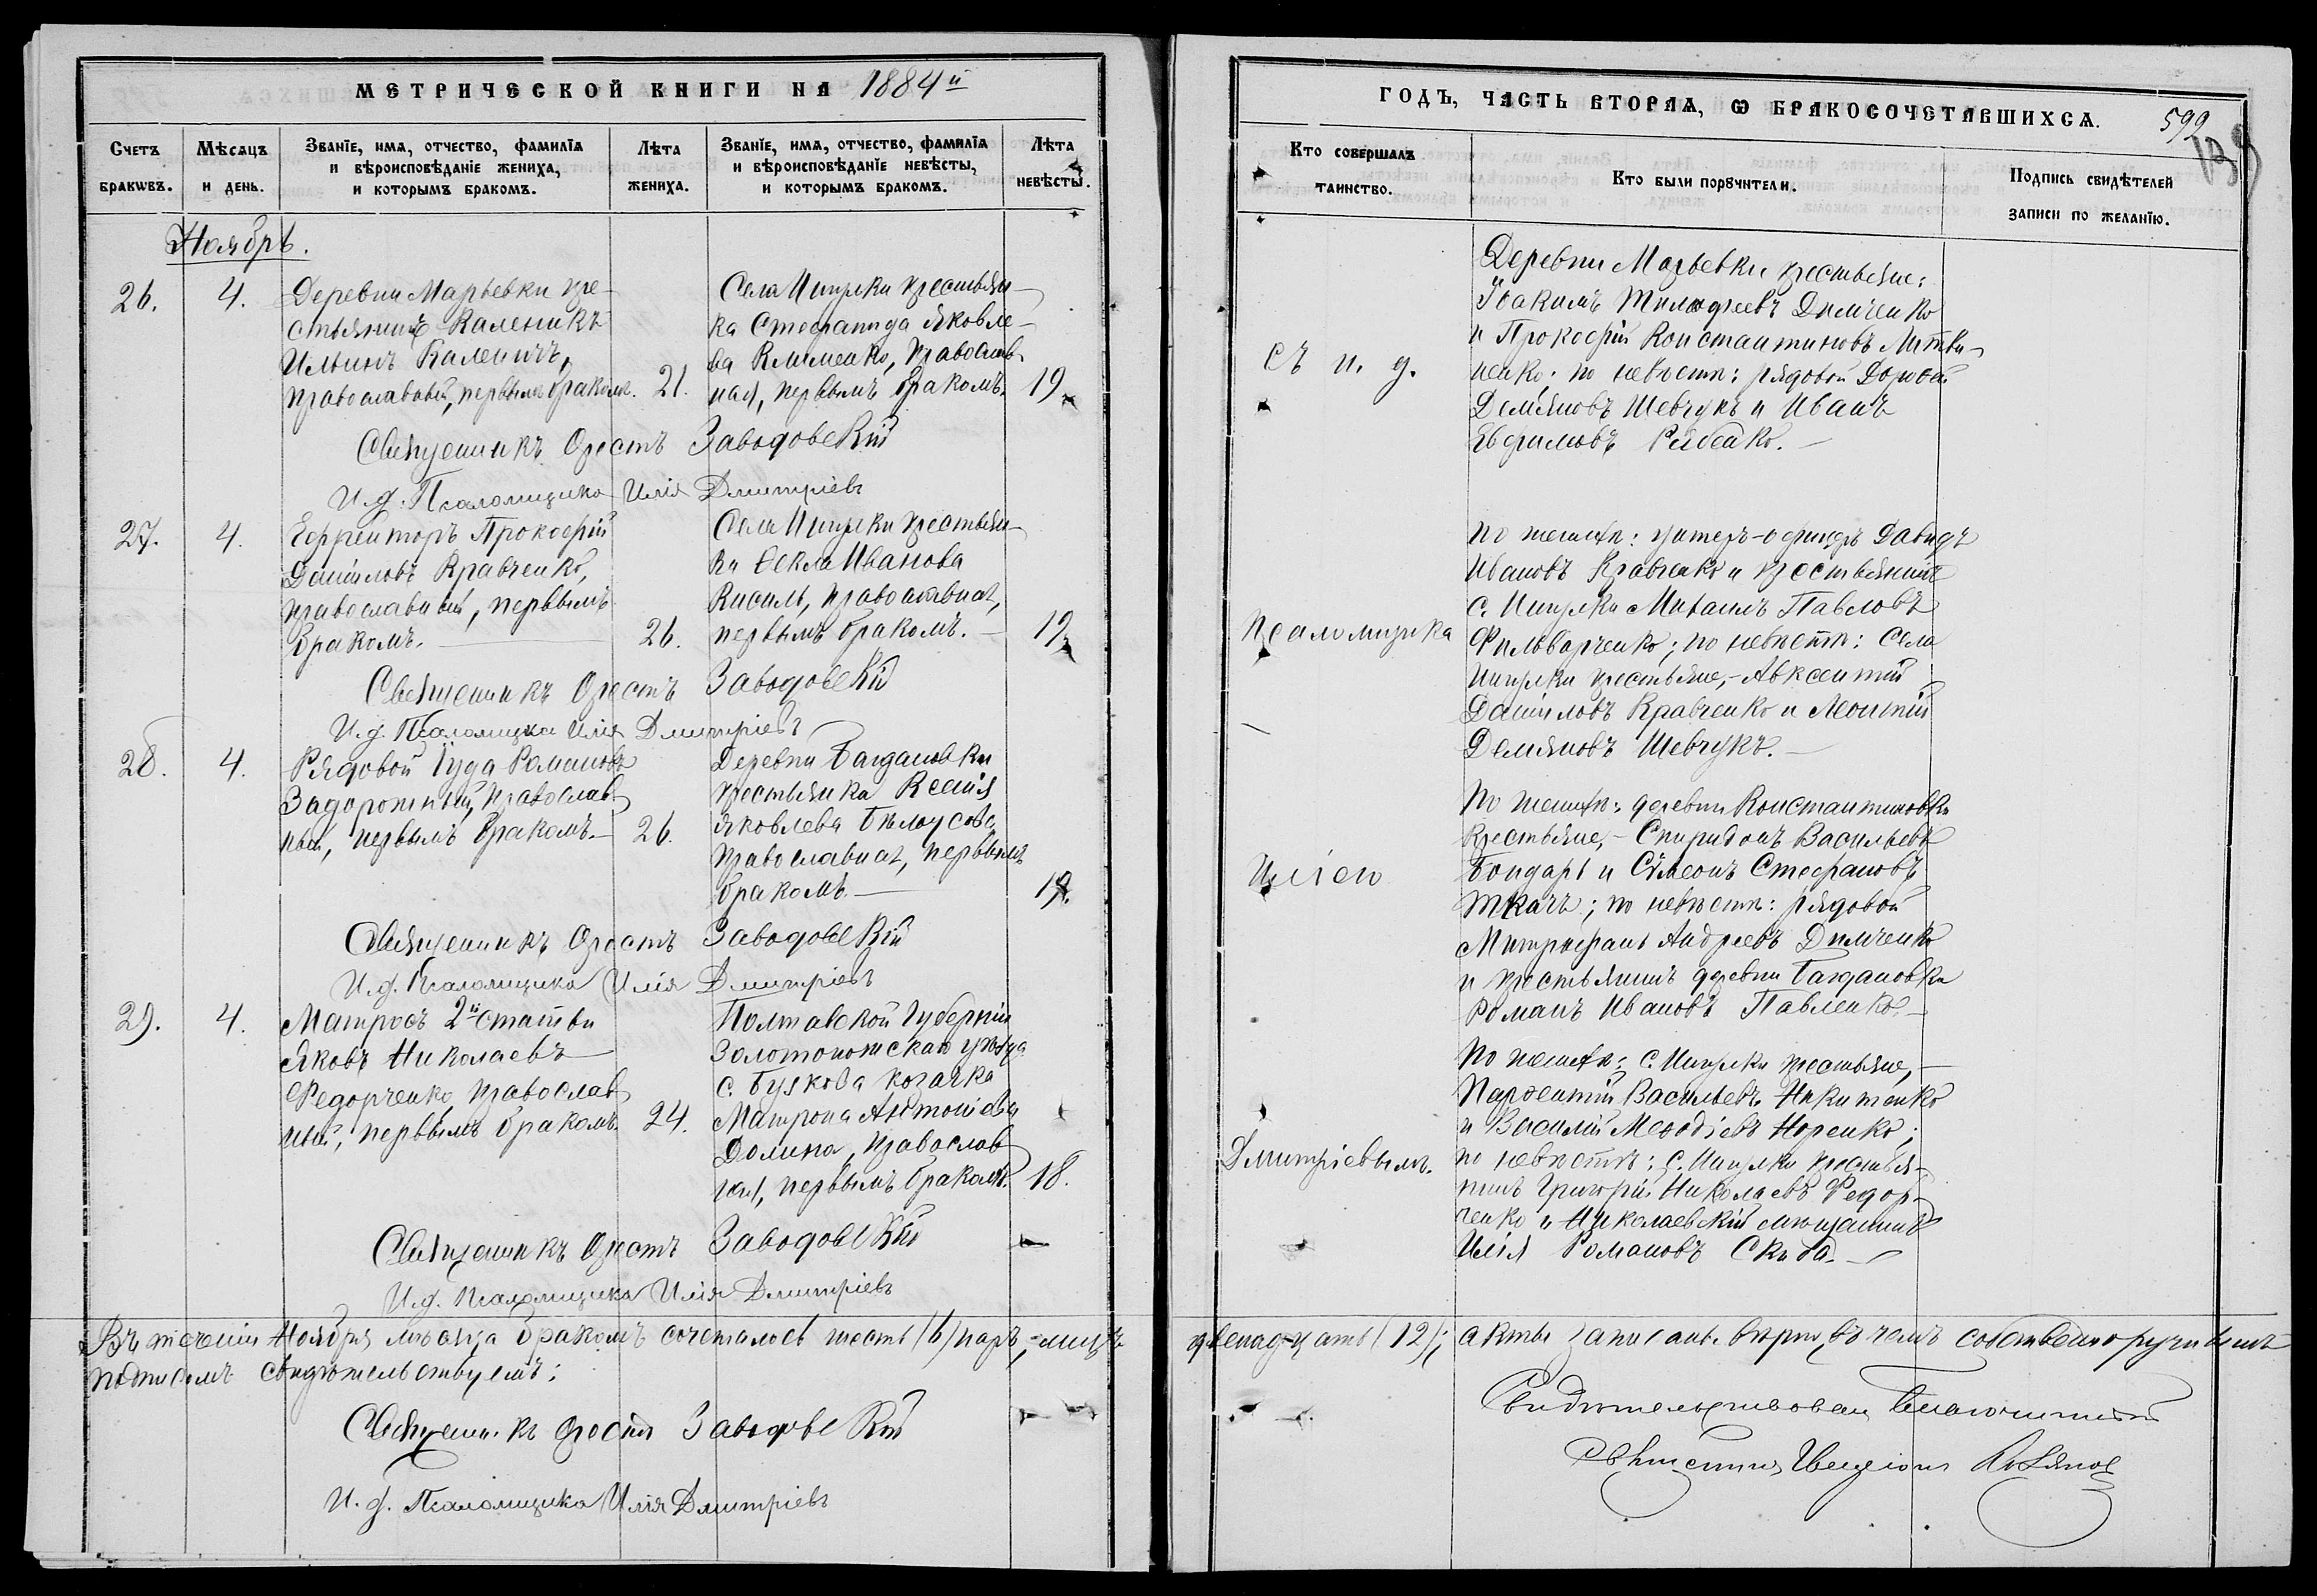 МЕТРИЧЕСКОЙ КНИГИ НА 1884й
Счетъ браковъ.
Мѣсяцъ и день.
Званіе, имя, отчество, фамилія и вѣроисповѣданіе жениха, и которымъ бракомъ.
Лѣта жениха.
Званіе, имя, отчество, фамилія и вѣроисповѣданіе невѣсты, и которымъ бракомъ.
Лѣта невѣсты.
Ноябрь.
26. 4.
Деревни Марьевки кре-
стьянинъ Каленикъ
Ильинъ Каленичъ,
православный, первымъ бракомъ. 21.
Села Ингулки крестьян-
ка Стефанида Яковле-
ва Клименко, православ-
ная, первымъ бракомъ. 19.
Священникъ Орестъ Заводовскій
И. д. Псаломщика Илія Дмитріевъ
27. 4.
Ефрейторъ Прокофій
Даніиловъ Кравченко,
православный, первымъ
бракомъ. 26.
Села Ингулки крестьян-
ка Ѳекла Иванова
Кисиль, православная,
первымъ бракомъ. 19.
Священникъ Орестъ Заводовскій
И. д. Псаломщика Илія Дмитріевъ
28. 4.
Рядовой Іуда Романовъ
Задорожный, православ-
ный, первымъ бракомъ. 26.
Деревни Богдановки
крестьянка Ксенія
Яковлева Бѣлоусова,
православная, первымъ
бракомъ. 19.
Священникъ Орестъ Заводовскій
И. д. Псаломщика Илія Дмитріевъ
29. 4.
Матросъ 2й статьи
Яковъ Николаевъ
Федорченко, православ-
ный, первымъ бракомъ. 24.
Полтавской Губерніи
Золотоношскаго уѣзда
с. козачка
Матрона Антоніева
Долина, православ-
ная, первымъ бракомъ. 18.
Священникъ Орестъ Заводовскій
И. д. Псаломщика Илія Дмитріевъ
Въ теченіи Ноября мѣсяца бракомъ сочеталось шесть (6) паръ, лицъ
подписомъ свидѣтельствуемъ:
Священникъ Орестъ Заводовскій
И. д. Псаломщика Илія Дмитріевъ
ГОДЪ, ЧАСТЬ ВТОРАЯ, Ѡ БРАКОСОЧЕТАВШИХСЯ.
599
Кто совершалъ таинство.
Кто были поручители.
Подпись свидѣтелей записи по желанію.
съ и. д.
Псаломщика
Иліею
Дмитріевымъ.
Деревни Марьевки крестьяне:
Іоакимъ Тимофеевъ Димченко
и Прокофій Константиновъ Литви-
ненко; по невѣстѣ: рядовой
Деміяновъ Шевчукъ и Иванъ
Евфимовъ Рябенко.
По женихѣ: унтеръ-офицеръ Давидъ
Ивановъ Кравченко и крестьянинъ
с. Ингулки Михаилъ Павловъ
Фильварченко; по невѣстѣ: села
Ингулки крестьяне, - Авксентій
Даніиловъ Кравченко и Леонтій
Деміяновъ Шевчукъ.
По женихѣ: деревни Константиновки
крестьяне, - Спиридонъ Васильевъ
Бондарь и Сѵмеонъ Стефановъ
Ткачъ; по невѣстѣ: рядовой
Митрофанъ Андреевъ Димченко
и крестьянинъ деревни Богдановки
Романъ Ивановъ Павленко.
По женихѣ: с. Ингулки крестьяне, -
Парѳентій Васильевъ Никитенко
и Василій Меѳодіевъ Норенко;
по невѣстѣ: с. Ингулки крестья-
нинъ Григорій Николаевъ Федор-
ченко и Николаевскій мѣщанинъ
Илія Романовъ Скиба.
двенадцать (12); акты записаны вѣрно, въ чемъ собственноручнымъ
Свидѣтельствовалъ Благочинный
Священникъ